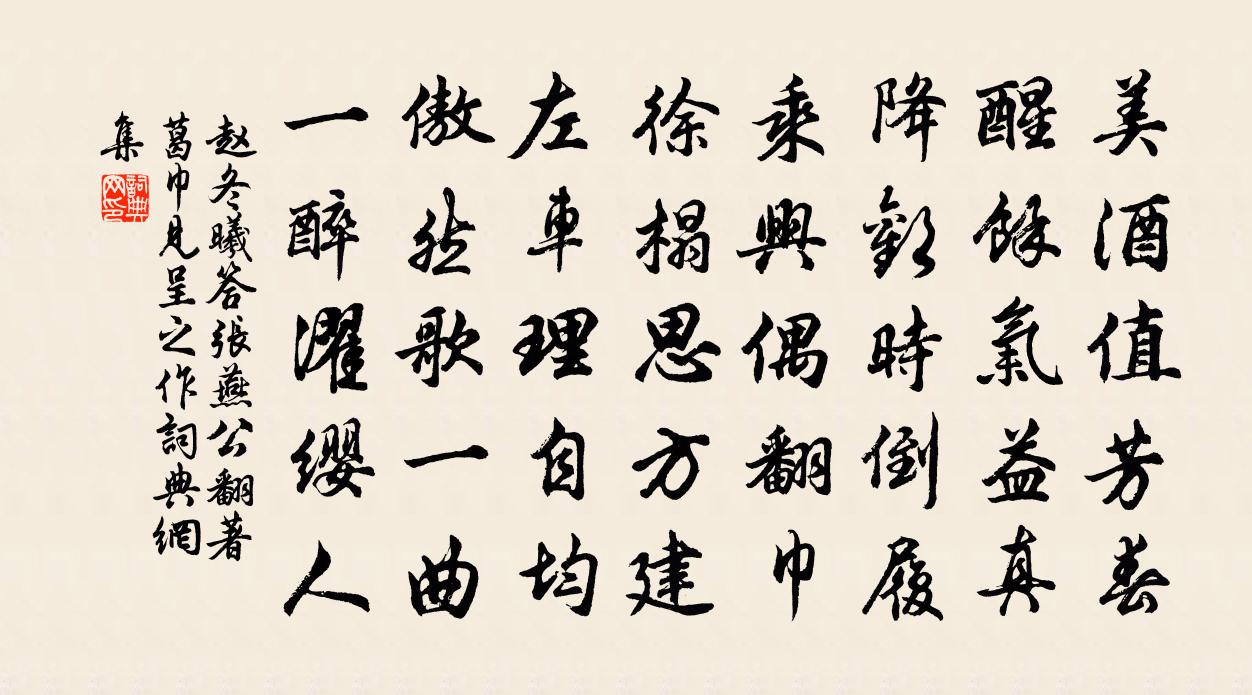 美酒值芳春
醒餘氣益真
降歡時倒履
乘興偶翻巾
徐榻思方建
左車理自均
傲然歌一曲
一醉濯纓人
赵冬曦答張燕公翻著
葛巾見呈之作詞典網
集
詞典網印